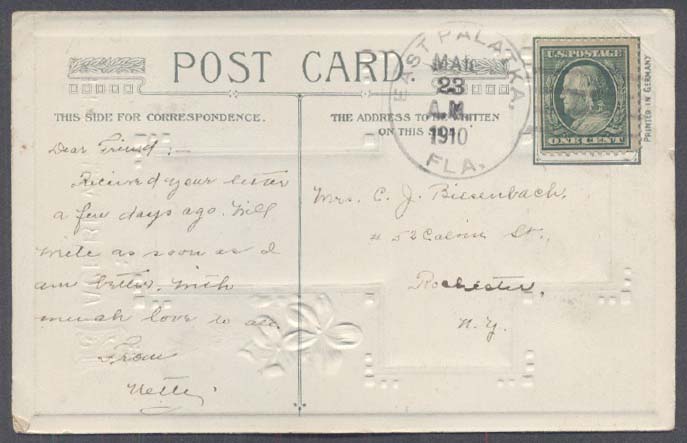 POST CARD
THIS SIDE FOR CORRESPONDENCE.
THE ADDRESS TO BE WRITTEN
ON THIS SIDE.
EAST PALATKA,
MAR
23
A.M.
1910
FLA.
U.S. POSTAGE
ONE CENT
PRINTED IN GERMANY
Dear Friend:—
Received your letter
a few days ago. Will
write as soon as I
am better. With
much love to all.
From
Nettie
Mrs. C. J. Biesenbach,
# 52 St.,
Rochester,
N.Y.